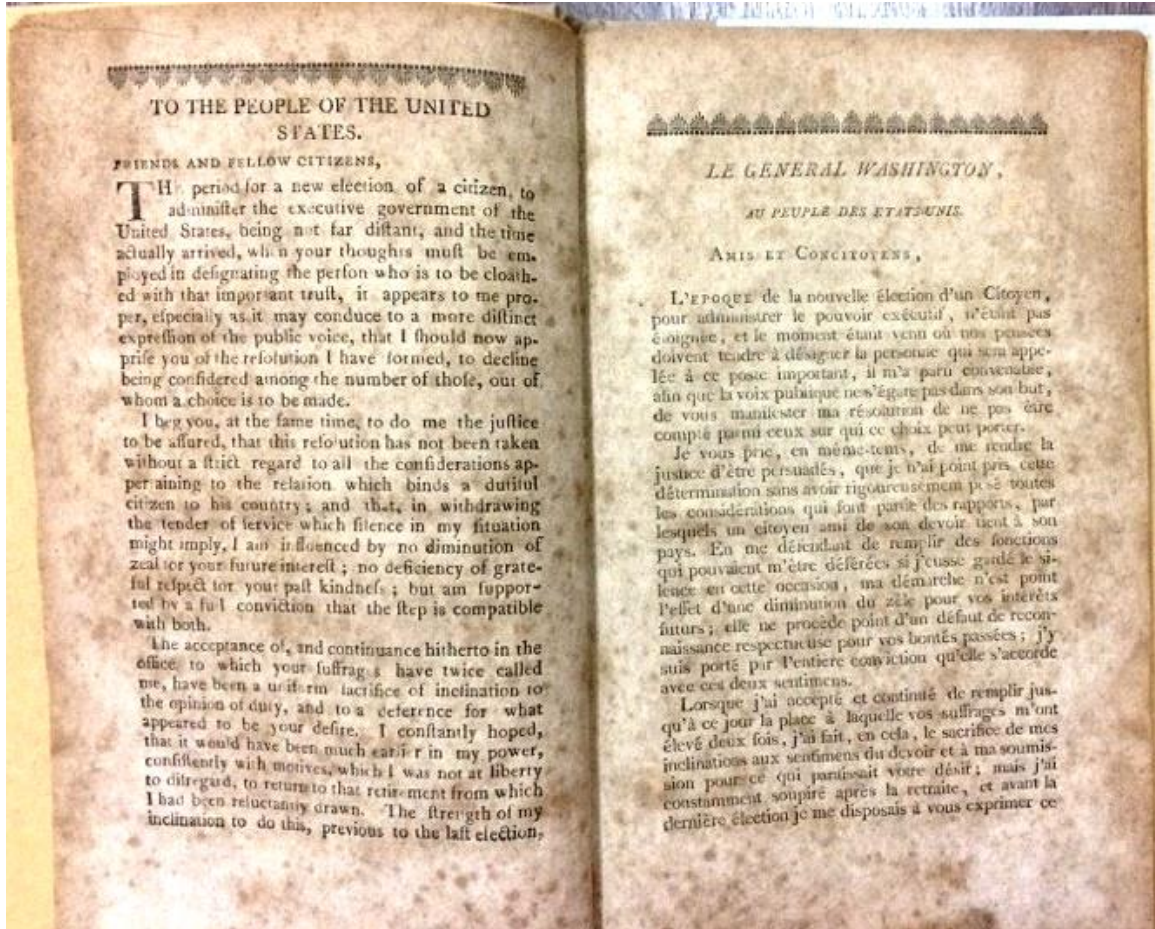 TO THE PEOPLE OF THE UNITED
STATES.
FRIENDS AND FELLOW CITIZENS,
THE period for a new election of a citizen, to
adminiſter the executive government of the
United States, being not far diſtant, and the time
actually arrived, when your thoughts muſt be em-
ployed in deſignating the perſon who is to be cloath-
ed with that important truſt, it appears to me pro-
per, eſpecially as it may conduce to a more diſtinct
expreſſion of the public voice, that I ſhould now ap-
priſe you of the reſolution I have formed, to decline
being conſidered among the number of thoſe, out of
whom a choice is to be made.
I beg you, at the ſame time, to do me the juſtice
to be aſſured, that this reſolution has not been taken
without a ſtrict regard to all the conſiderations ap-
pertaining to the relation which binds a dutiful
citizen to his country; and that, in withdrawing
the tender of ſervice which ſilence in my ſituation
might imply, I am influenced by no diminution of
zeal for your future intereſt; no deficiency of grate-
ful reſpect for your paſt kindneſs; but am ſuppor-
ted by a full conviction that the ſtep is compatible
with both.
The acceptance of, and continuance hitherto in the
office to which your ſuffrages have twice called
me, have been a uniform ſacrifice of inclination to
the opinion of duty, and to a deference for what
appeared to be your deſire. I conſtantly hoped,
that it would have been much earlier in my power,
conſiſtently with motives, which I was not at liberty
to diſregard, to return to that retirement from which
I had been reluctantly drawn. The ſtrength of my
inclination to do this, previous to the laſt election,
LE GENERAL WASHINGTON,
AU PEUPLE DES ETATS-UNIS.
AMIS ET CONCITOYENS,
L'EPOQUE de la nouvelle élection d'un Citoyen,
pour administrer le pouvoir exécutif, n'étant pas
éloignée, et le moment étant venu où nos pensées
doivent tendre à désigner la personne qui sera appe-
lée à ce poste important, il m'a paru convenable,
afin que la voix publique ne s'égare pas dans son but,
de vous manifester ma résolution de ne pas être
compté parmi ceux sur qui ce choix peut porter.
Je vous prie, en même-tems, de me rendre la
justice d'être persuadés, que je n'ai point pris cette
détermination sans avoir rigoureusement pesé toutes
les considérations qui font partie des rapports, par
lesquels un citoyen ami de son devoir tient à son
pays. En me défendant de remplir des fonctions
qui pouvaient m'être déférées si j'eusse gardé le si-
lence en cette occasion, ma démarche n'est point
l'effet d'une diminution du zèle pour vos intérêts
futurs; elle ne procède point d'un défaut de recon-
naissance respectueuse pour vos bontés passées; j'y
suis porté par l'entiere conviction qu'elle s'accorde
avec ces deux sentimens.
Lorsque j'ai accepté et continué de remplir jus-
qu'à ce jour la place à laquelle vos suffrages m'ont
élevé deux fois, j'ai fait, en cela, le sacrifice de mes
inclinations aux sentimens du devoir et à ma soumis-
sion pour ce qui paraissait votre désir; mais j'ai
constamment soupiré après la retraite, et avant la
dernière élection je me disposais à vous exprimer ce